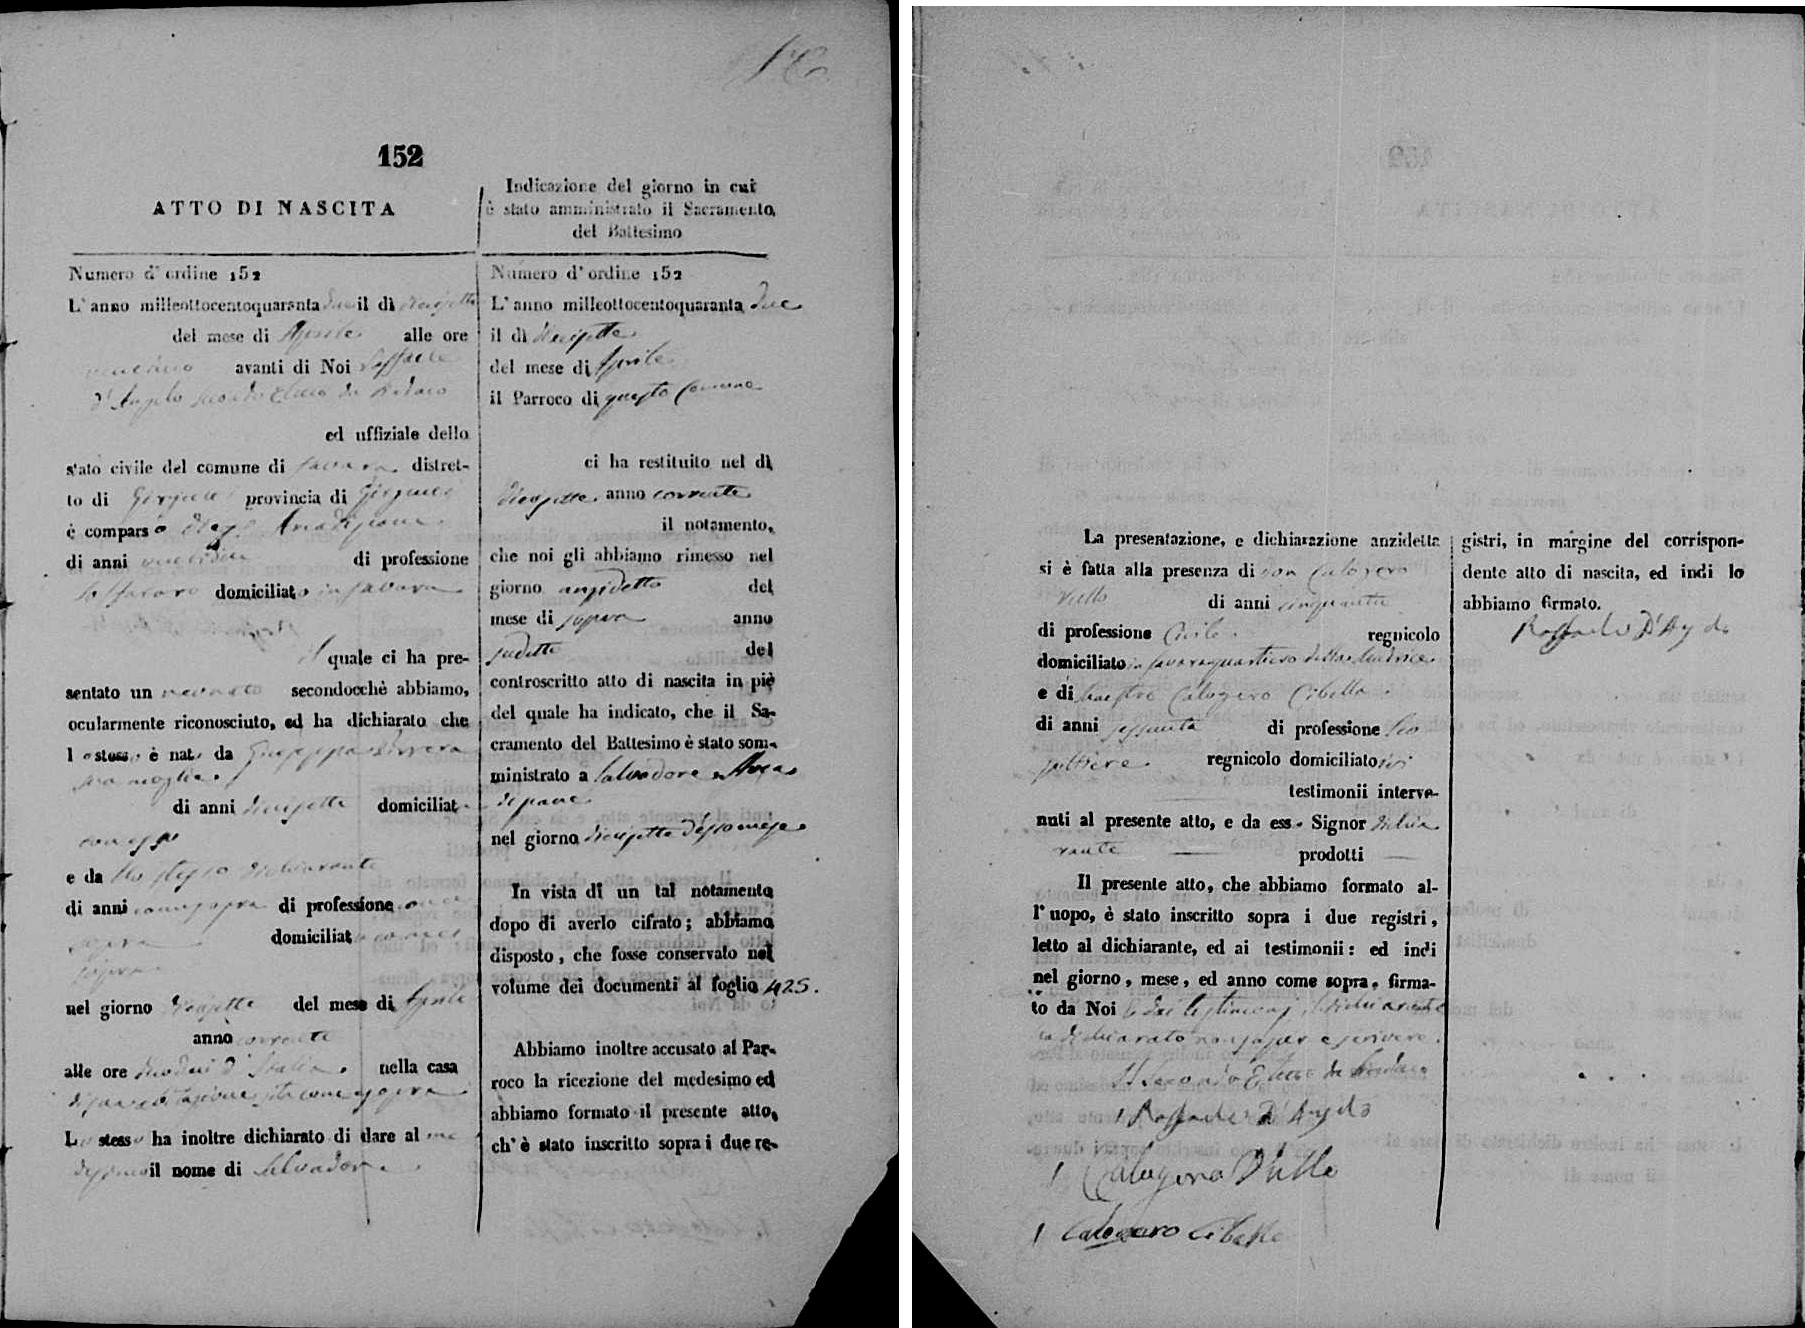 152
ATTO DI NASCITA
Numero d'ordine 152
L'anno milleottocentoquaranta due il dì diecisette
del mese di Aprile alle ore
avanti di Noi Raffaele
d'Angelo Secondo Eletto da Sindaco
ed uffiziale dello
stato civile del comune di Favara distret-
to di Girgenti provincia di Girgenti
è comparso
di anni di professione
Solfataro domiciliato in Favara
Il quale ci ha pre-
sentato un neonato secondocchè abbiamo,
ocularmente riconosciuto, ed ha dichiarato che
lo stesso è nato da Giuseppa
sua moglie
di anni diecisette domiciliata
con esso
e da lo stesso dichiarante
di anni come sopra di professione come
sopra domiciliato come
sopra
nel giorno diecisette del mese di Aprile
anno corrente
alle ore d'Italia nella casa
di sua abitazione sita come sopra
Lo stesso ha inoltre dichiarato di dare al me
desimo il nome di Salvadore
Indicazione del giorno in cui
è stato amministrato il Sacramento,
del Battesimo
Numero d'ordine 152
L'anno milleottocentoquaranta due
il dì diecisette
del mese di Aprile
il Parroco di questa Comune
ci ha restituito nel dì
diecisette anno corrente
il notamento,
che noi gli abbiamo rimesso nel
giorno anzidetto del
mese di sopra anno
sudetto del
controscritto atto di nascita in piè
del quale ha indicato, che il Sa-
cramento del Battesimo è stato som-
ministrato a Salvadore
nel giorno diecisette d'esso mese
In vista di un tal notamento
dopo di averlo cifrato; abbiamo
disposto, che fosse conservato nel
volume dei documenti al foglio 425.
Abbiamo inoltre accusato al Par-
roco la ricezione del medesimo ed
abbiamo formato il presente atto,
ch'è stato inscritto sopra i due re-
La presentazione, e dichiarazione anzidetta
si è fatta alla presenza di Don Calogero
di anni cinquanta
di professione Civile regnicolo
domiciliato in Favara quartiere della Madrice
e di Maestro Calogero Cibella
di anni sessanta di professione
regnicolo domiciliato ivi
testimonii interve-
nuti al presente atto, e da esso Signor dichia
rante prodotti
Il presente atto, che abbiamo formato al-
l'uopo, è stato inscritto sopra i due registri,
letto al dichiarante, ed ai testimonii: ed indi
nel giorno, mese, ed anno come sopra, firma-
to da Noi e dai testimonj il dichiarante
ha dichiarato non saper scrivere
Il Secondo Eletto da Sindaco
Raffaele D'Angelo
Calogero
Calogero Cibella
gistri, in margine del corrispon-
dente atto di nascita, ed indi lo
abbiamo firmato.
Raffaele D'Angelo